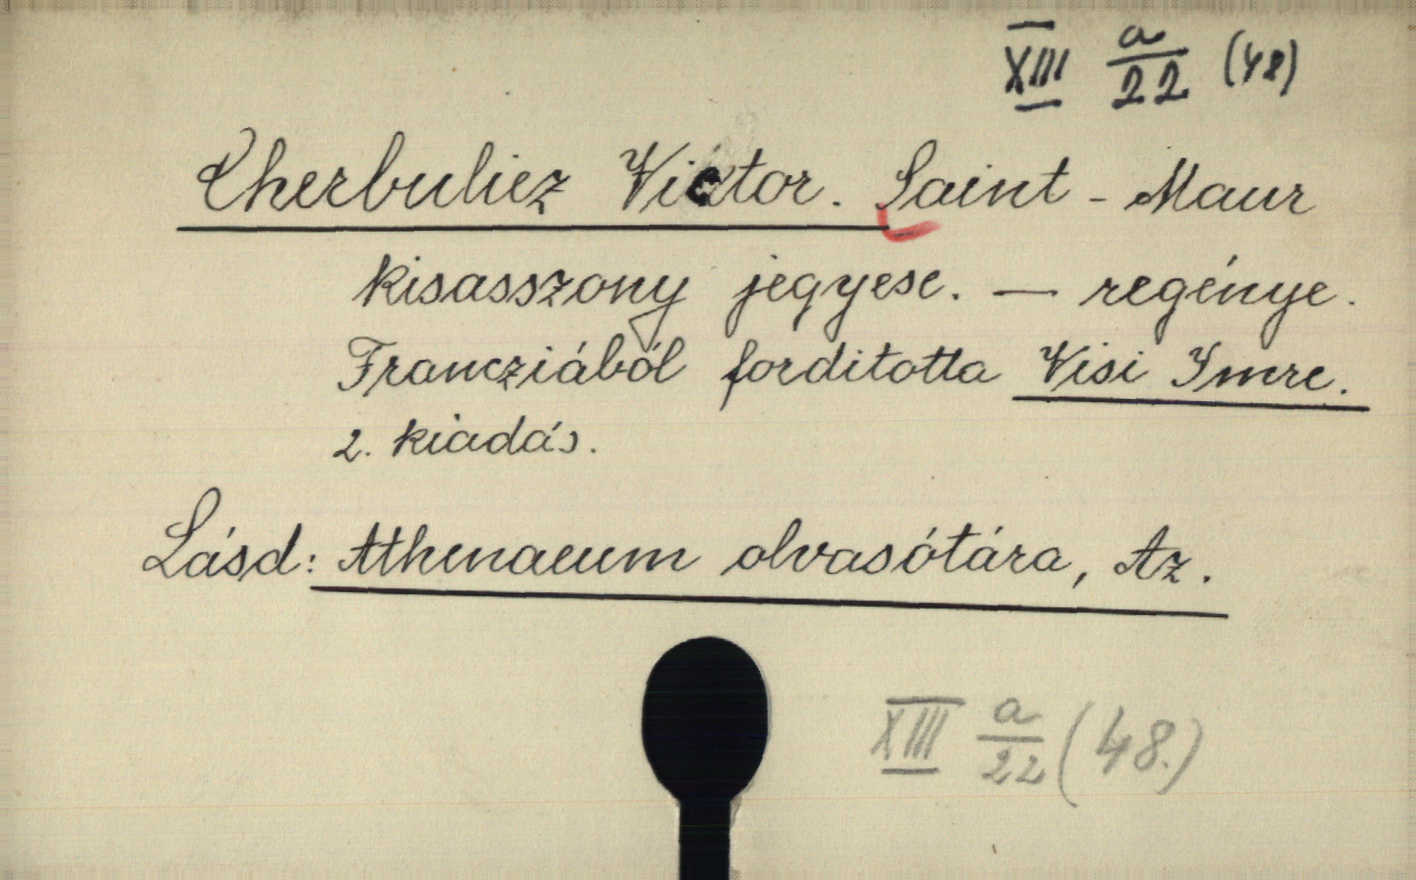 XIII a/22 (48)
Cherbuliez Victor. Saint-Maur
kisasszony jegyese. — regénye.
Francziából forditotta Visi Imre.
2. kiadás.
Lásd: Athenaeum olvasótára, Az.
XIII a/22 (48.)